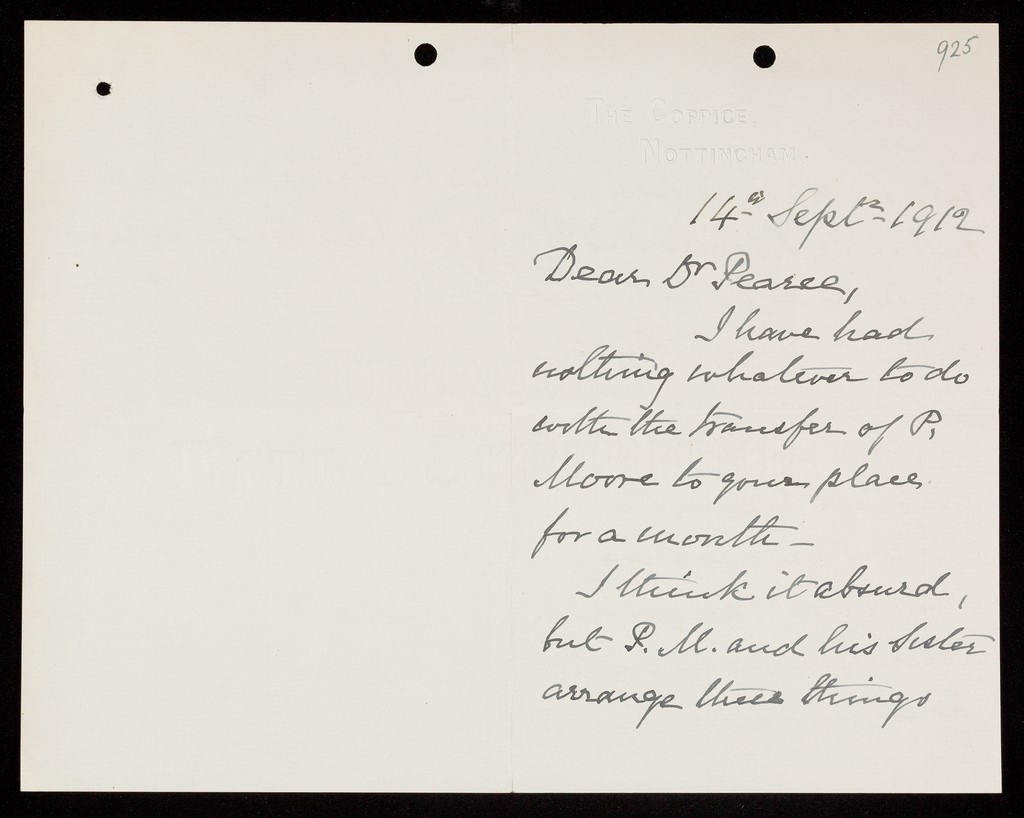 925
THE COPPICE.
NOTTINGHAM.
14th Sept. 1912
Dear Dr Pearce,
I have had
nothing whatever to do
with the transfer of P.
Moore to your place
for a month –
I think it absurd,
but P. M. and his sister
arrange these things